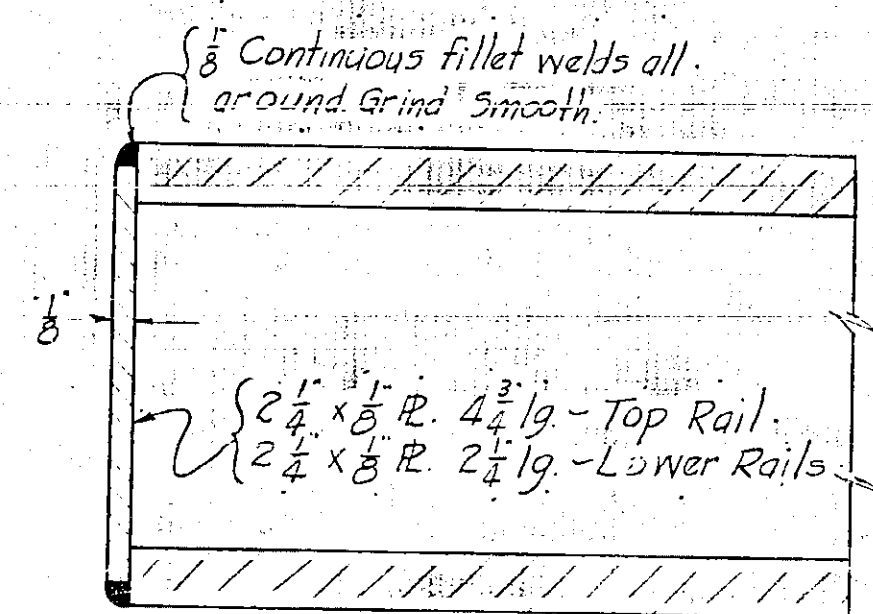 1/8" Continuous fillet welds all
around. Grind Smooth.
1/8"
2 1/4" x 1/8" PL. 4 3/4" lg. - Top Rail.
2 1/4" x 1/8" PL. 2 1/4" lg. - Lower Rails